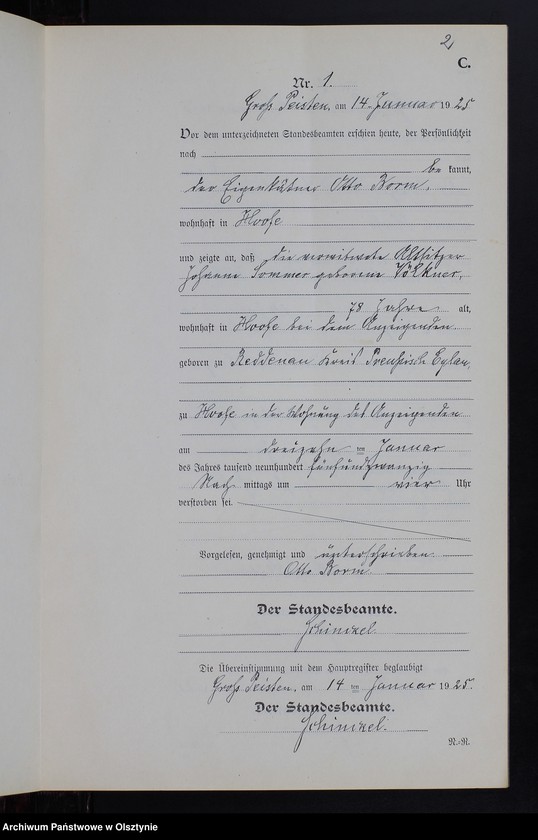 2
C.
Nr. 1.
Groß Peisten, am 14. Januar 1925
Vor dem unterzeichneten Standesbeamten erschien heute, der Persönlichkeit
nach
be kannt,
der Eigenkätner Otto Korm,
wohnhaft in Hoofe
und zeigte an, daß die verwitwete Altsitzer
Johanne Sommer geborene Völkner,
78 Jahre alt,
wohnhaft in Hoofe bei dem Anzeigenden
geboren zu Reddenau Kreis Preußisch Eylau,
zu Hoofe in der Wohnung des Anzeigenden
am dreizehn ten Januar
des Jahres tausend neunhundert fünfundzwanzig
Nach mittags um vier Uhr
verstorben sei.
Vorgelesen, genehmigt und unterschrieben
Otto Korm
Der Standesbeamte.
Schinkel.
Die Übereinstimmung mit dem Hauptregister beglaubigt
Groß Peisten, am 14 ten Januar 1925.
Der Standesbeamte.
Schinkel.
R.-R.
Archiwum Państwowe w Olsztynie